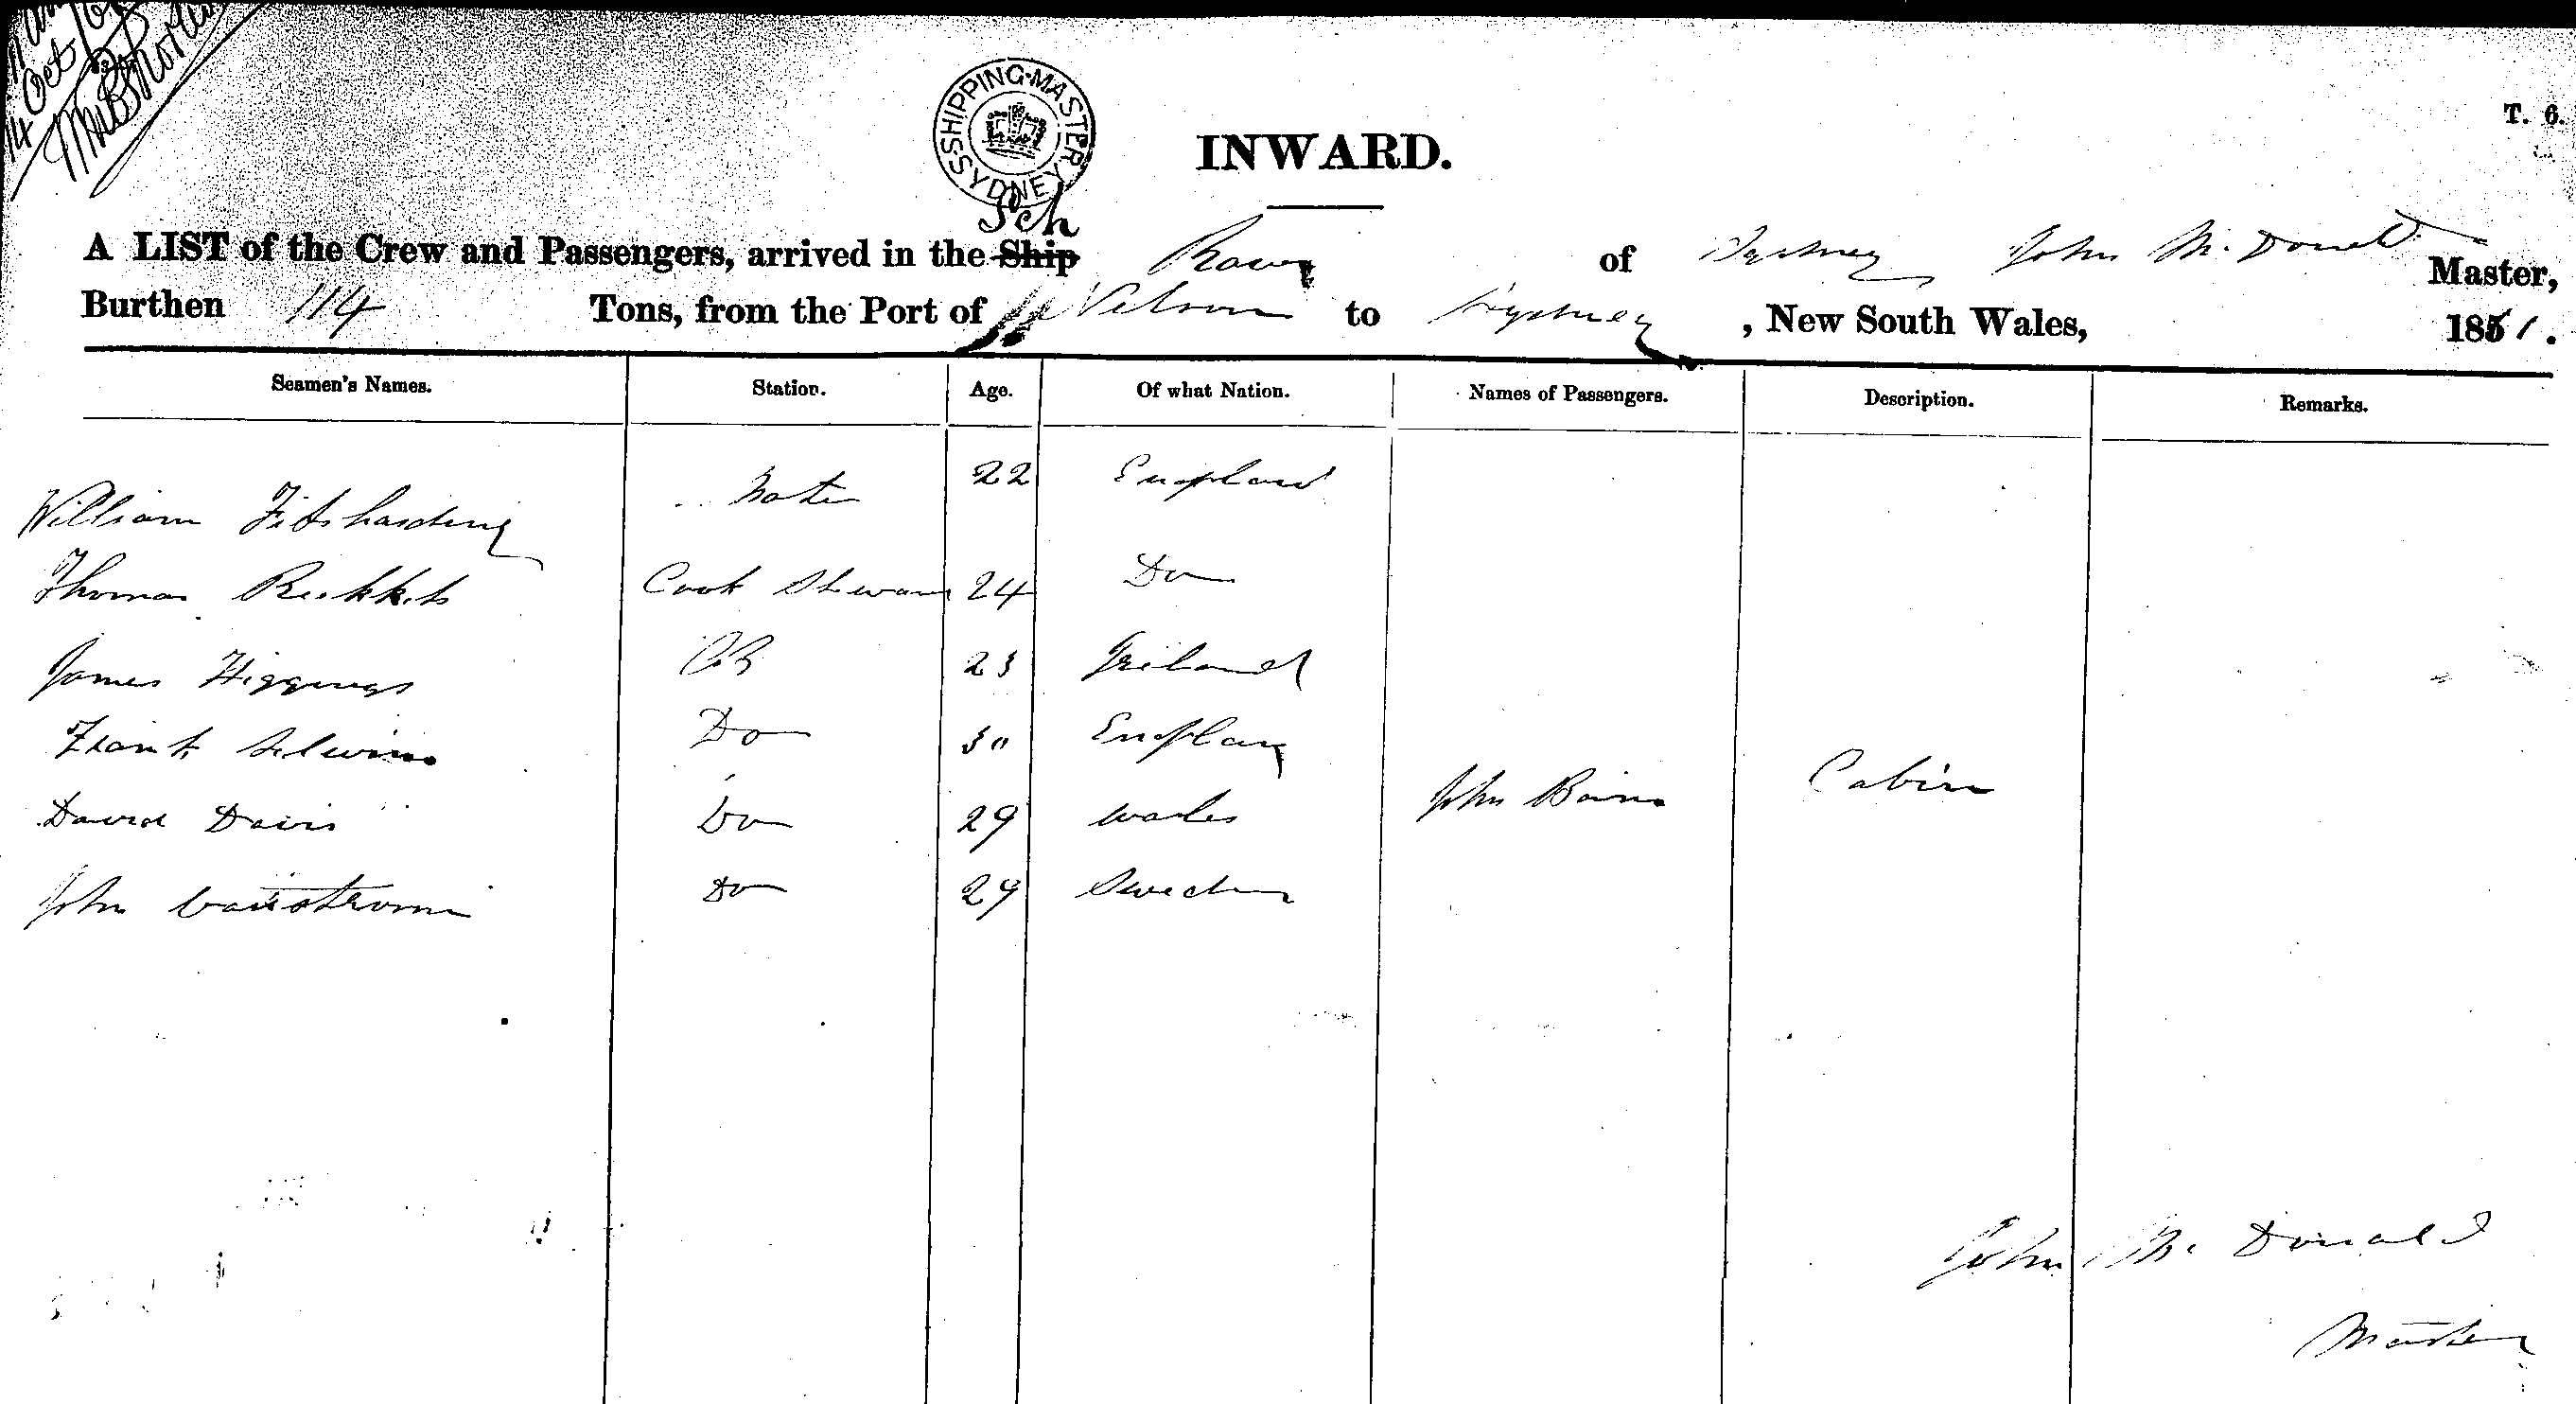 14 Oct
SHIPPING MASTER SYDNEY
T. 6.
INWARD.
Sch
A LIST of the Crew and Passengers, arrived in the Ship of Sydney John McDonald Master,
Burthen 114 Tons, from the Port of Nelson to Sydney, New South Wales, 1861.
Seamen's Names. Station. Age. Of what Nation. Names of Passengers. Description. Remarks.
William Fitzhardinge Mate 22 England
Thomas Cook Steward 24 Do
James Higgings AB 23 Ireland
Frank Selwin Do 30 England
David Davis Do 29 Wales John Cabin
John Do 29 Sweden
John McDonald
Master